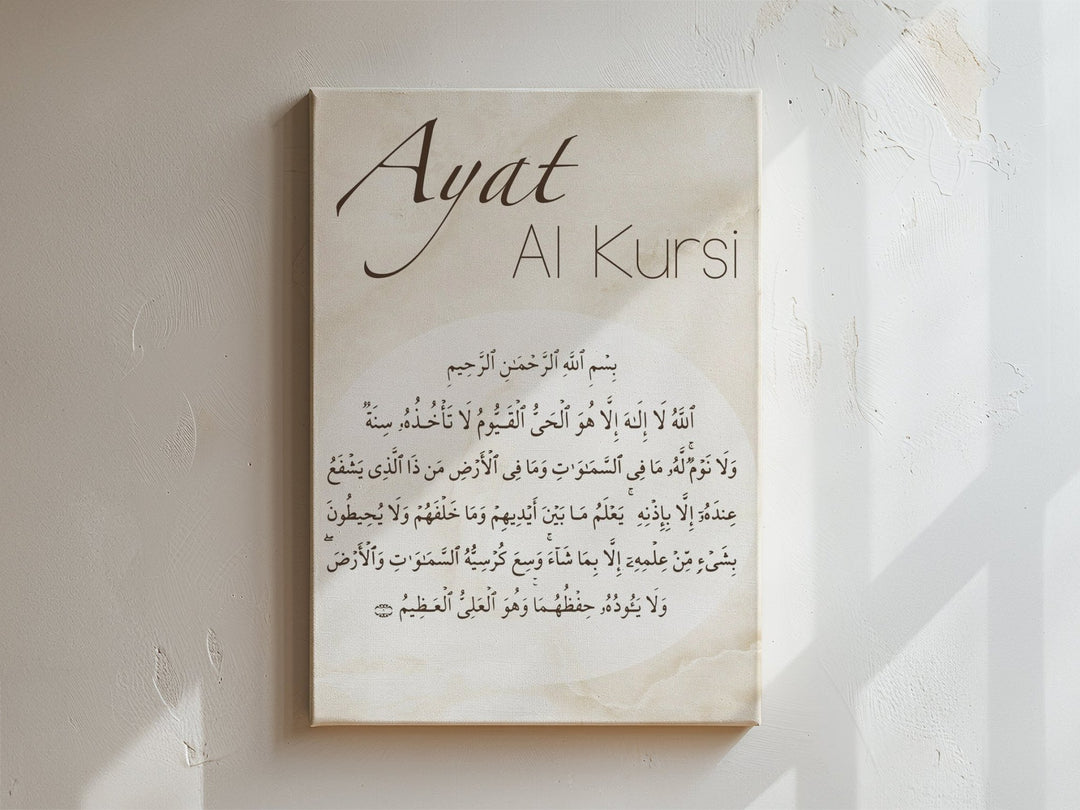 Ayat
Al Kursi
بِسْمِ ٱللَّهِ ٱلرَّحْمَـٰنِ ٱلرَّحِيمِ
ٱللَّهُ لَا إِلَـٰهَ إِلَّا هُوَ ٱلْحَىُّ ٱلْقَيُّومُ لَا تَأْخُذُهُۥ سِنَةٌ
وَلَا نَوْمٌ ۚ لَّهُۥ مَا فِى ٱلسَّمَـٰوَٰتِ وَمَا فِى ٱلْأَرْضِ مَن ذَا ٱلَّذِى يَشْفَعُ
عِندَهُۥٓ إِلَّا بِإِذْنِهِ ۚ يَعْلَمُ مَا بَيْنَ أَيْدِيهِمْ وَمَا خَلْفَهُمْ وَلَا يُحِيطُونَ
بِشَىْءٍ مِّنْ عِلْمِهِۦٓ إِلَّا بِمَا شَآءَ ۚ وَسِعَ كُرْسِيُّهُ ٱلسَّمَـٰوَٰتِ وَٱلْأَرْضَ ۖ
وَلَا يَـُٔودُهُۥ حِفْظُهُمَا ۚ وَهُوَ ٱلْعَلِىُّ ٱلْعَظِيمُ